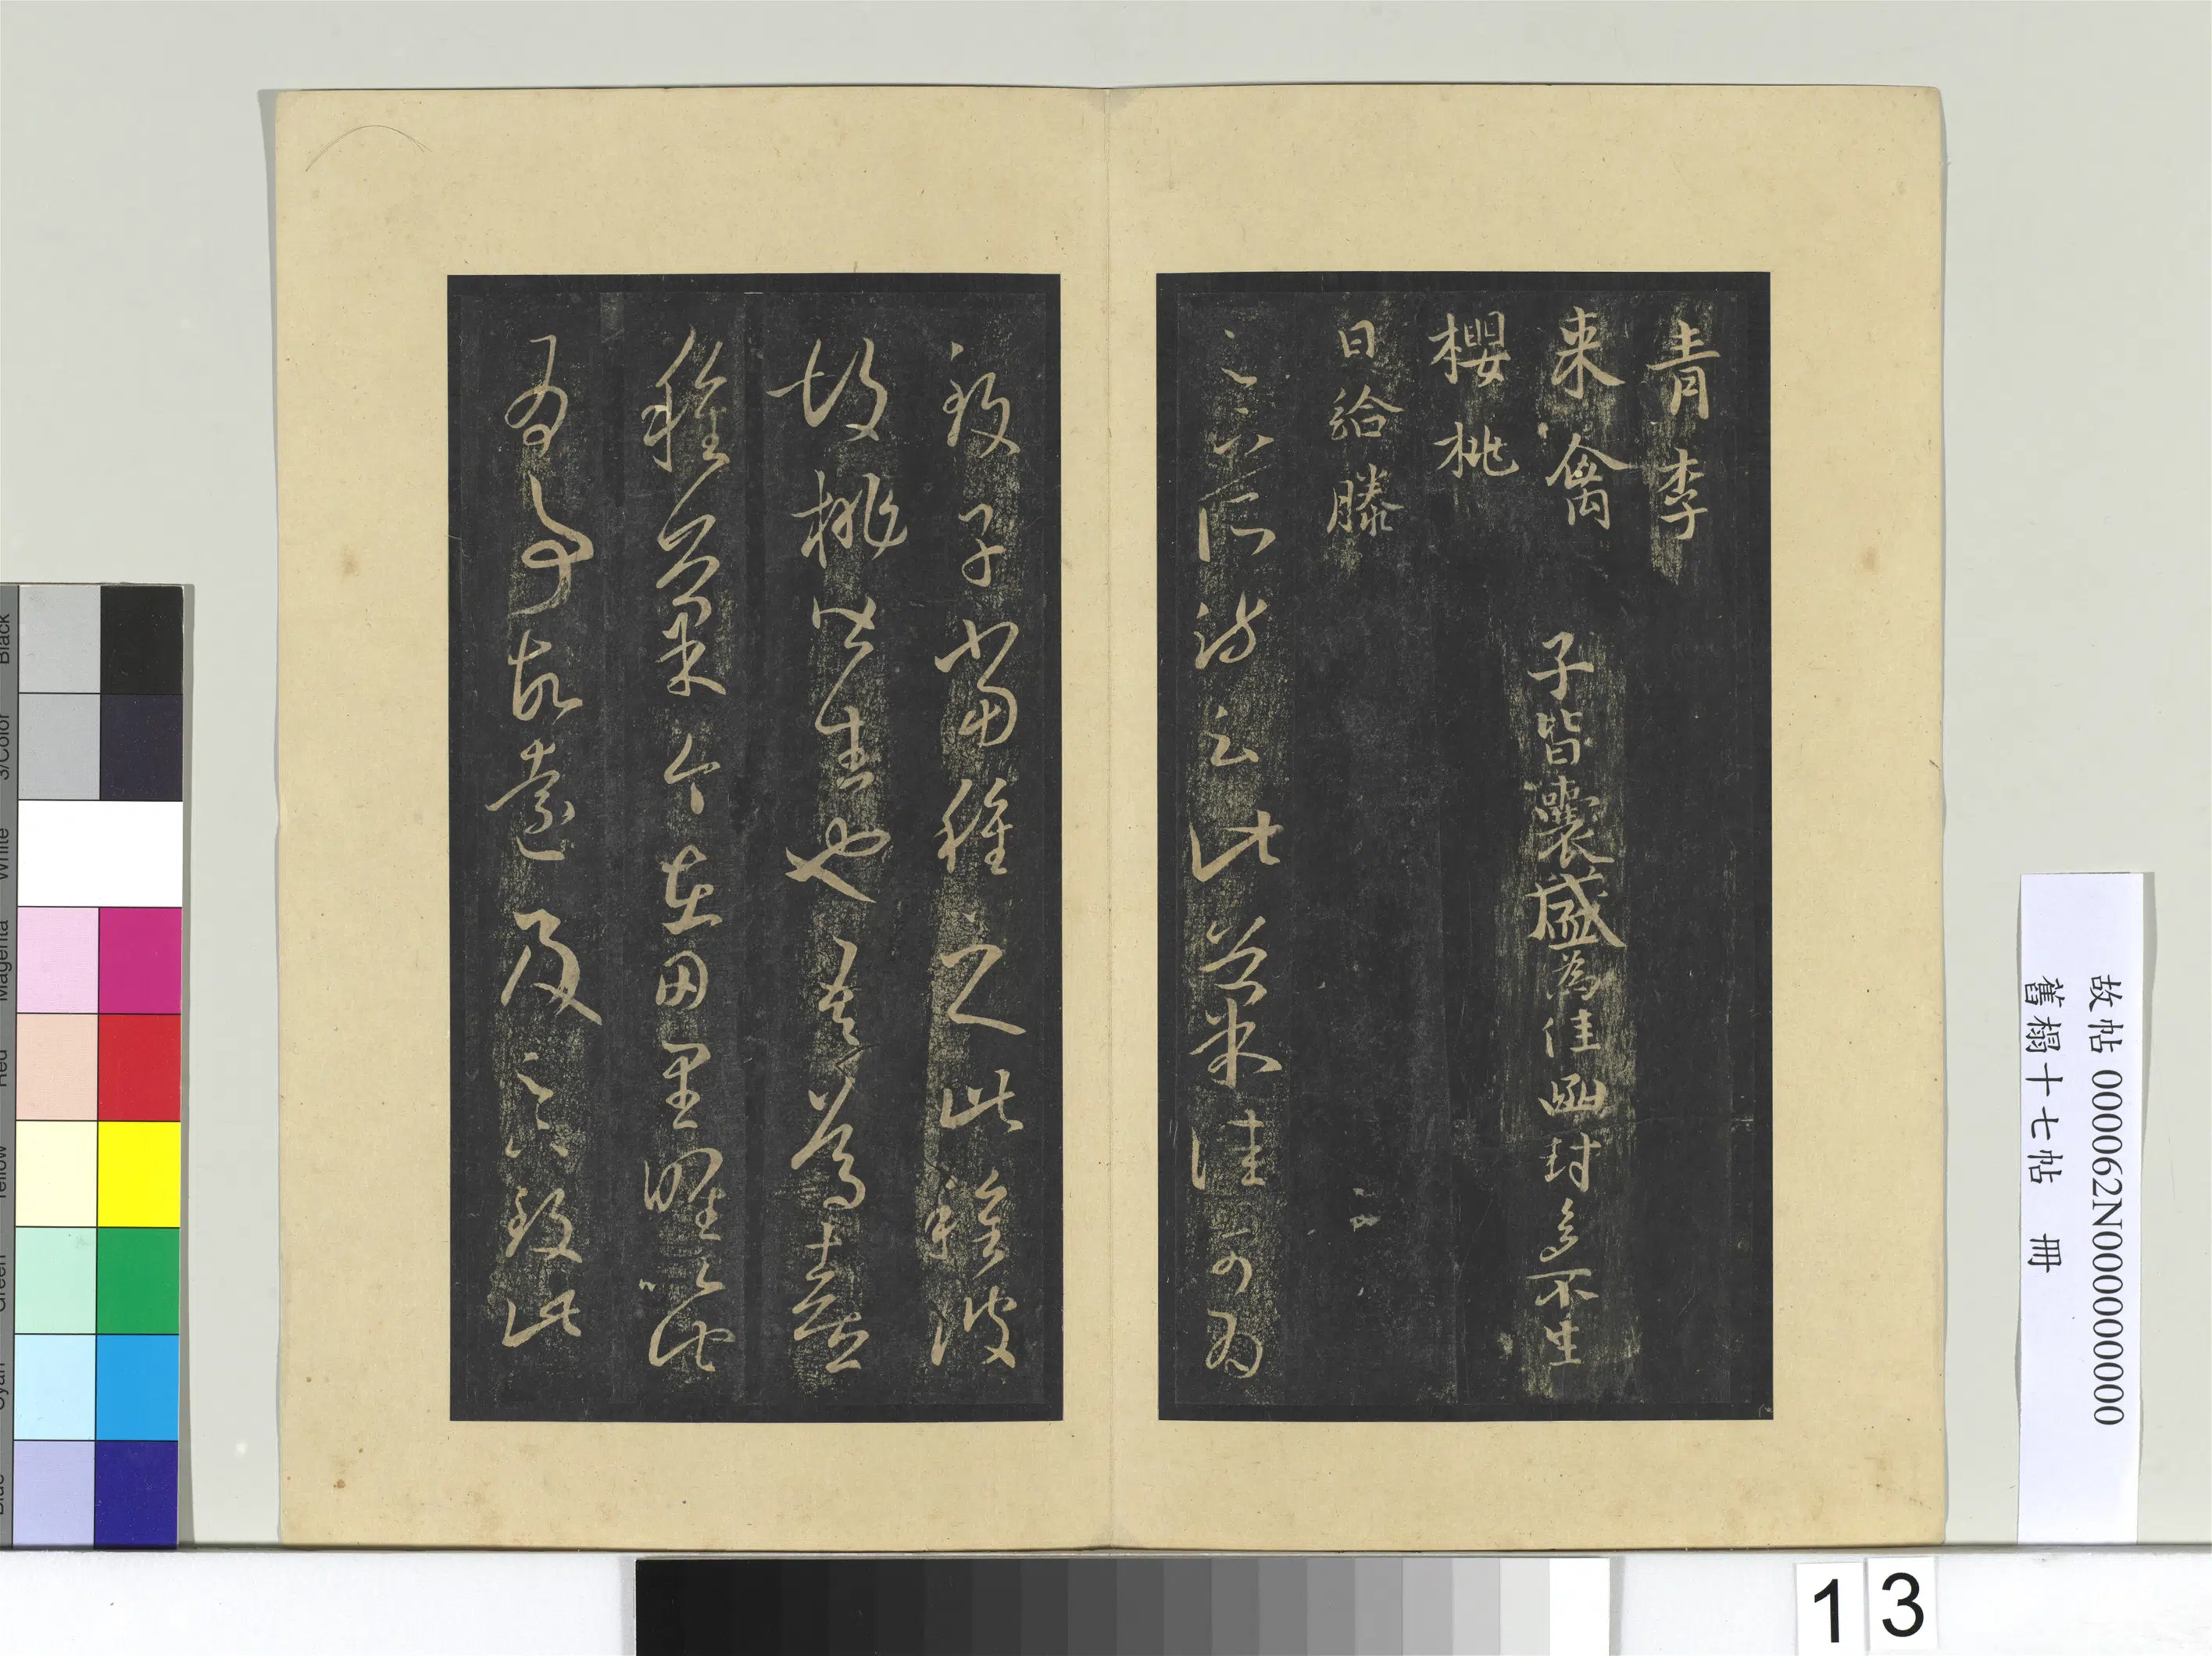 青李
来禽
子皆囊盛為佳函封多不生
櫻桃
日給滕
足下所疏云此菓佳可為
致子當種之此種彼
胡桃皆生也吾篤喜
種菓今在田里唯以此
為事故遠及足下致此
故帖 000062N000000000
舊榻十七帖 冊
13
Black
3/Color
White
Magenta
Red
Yellow
Green
Cyan
Blue